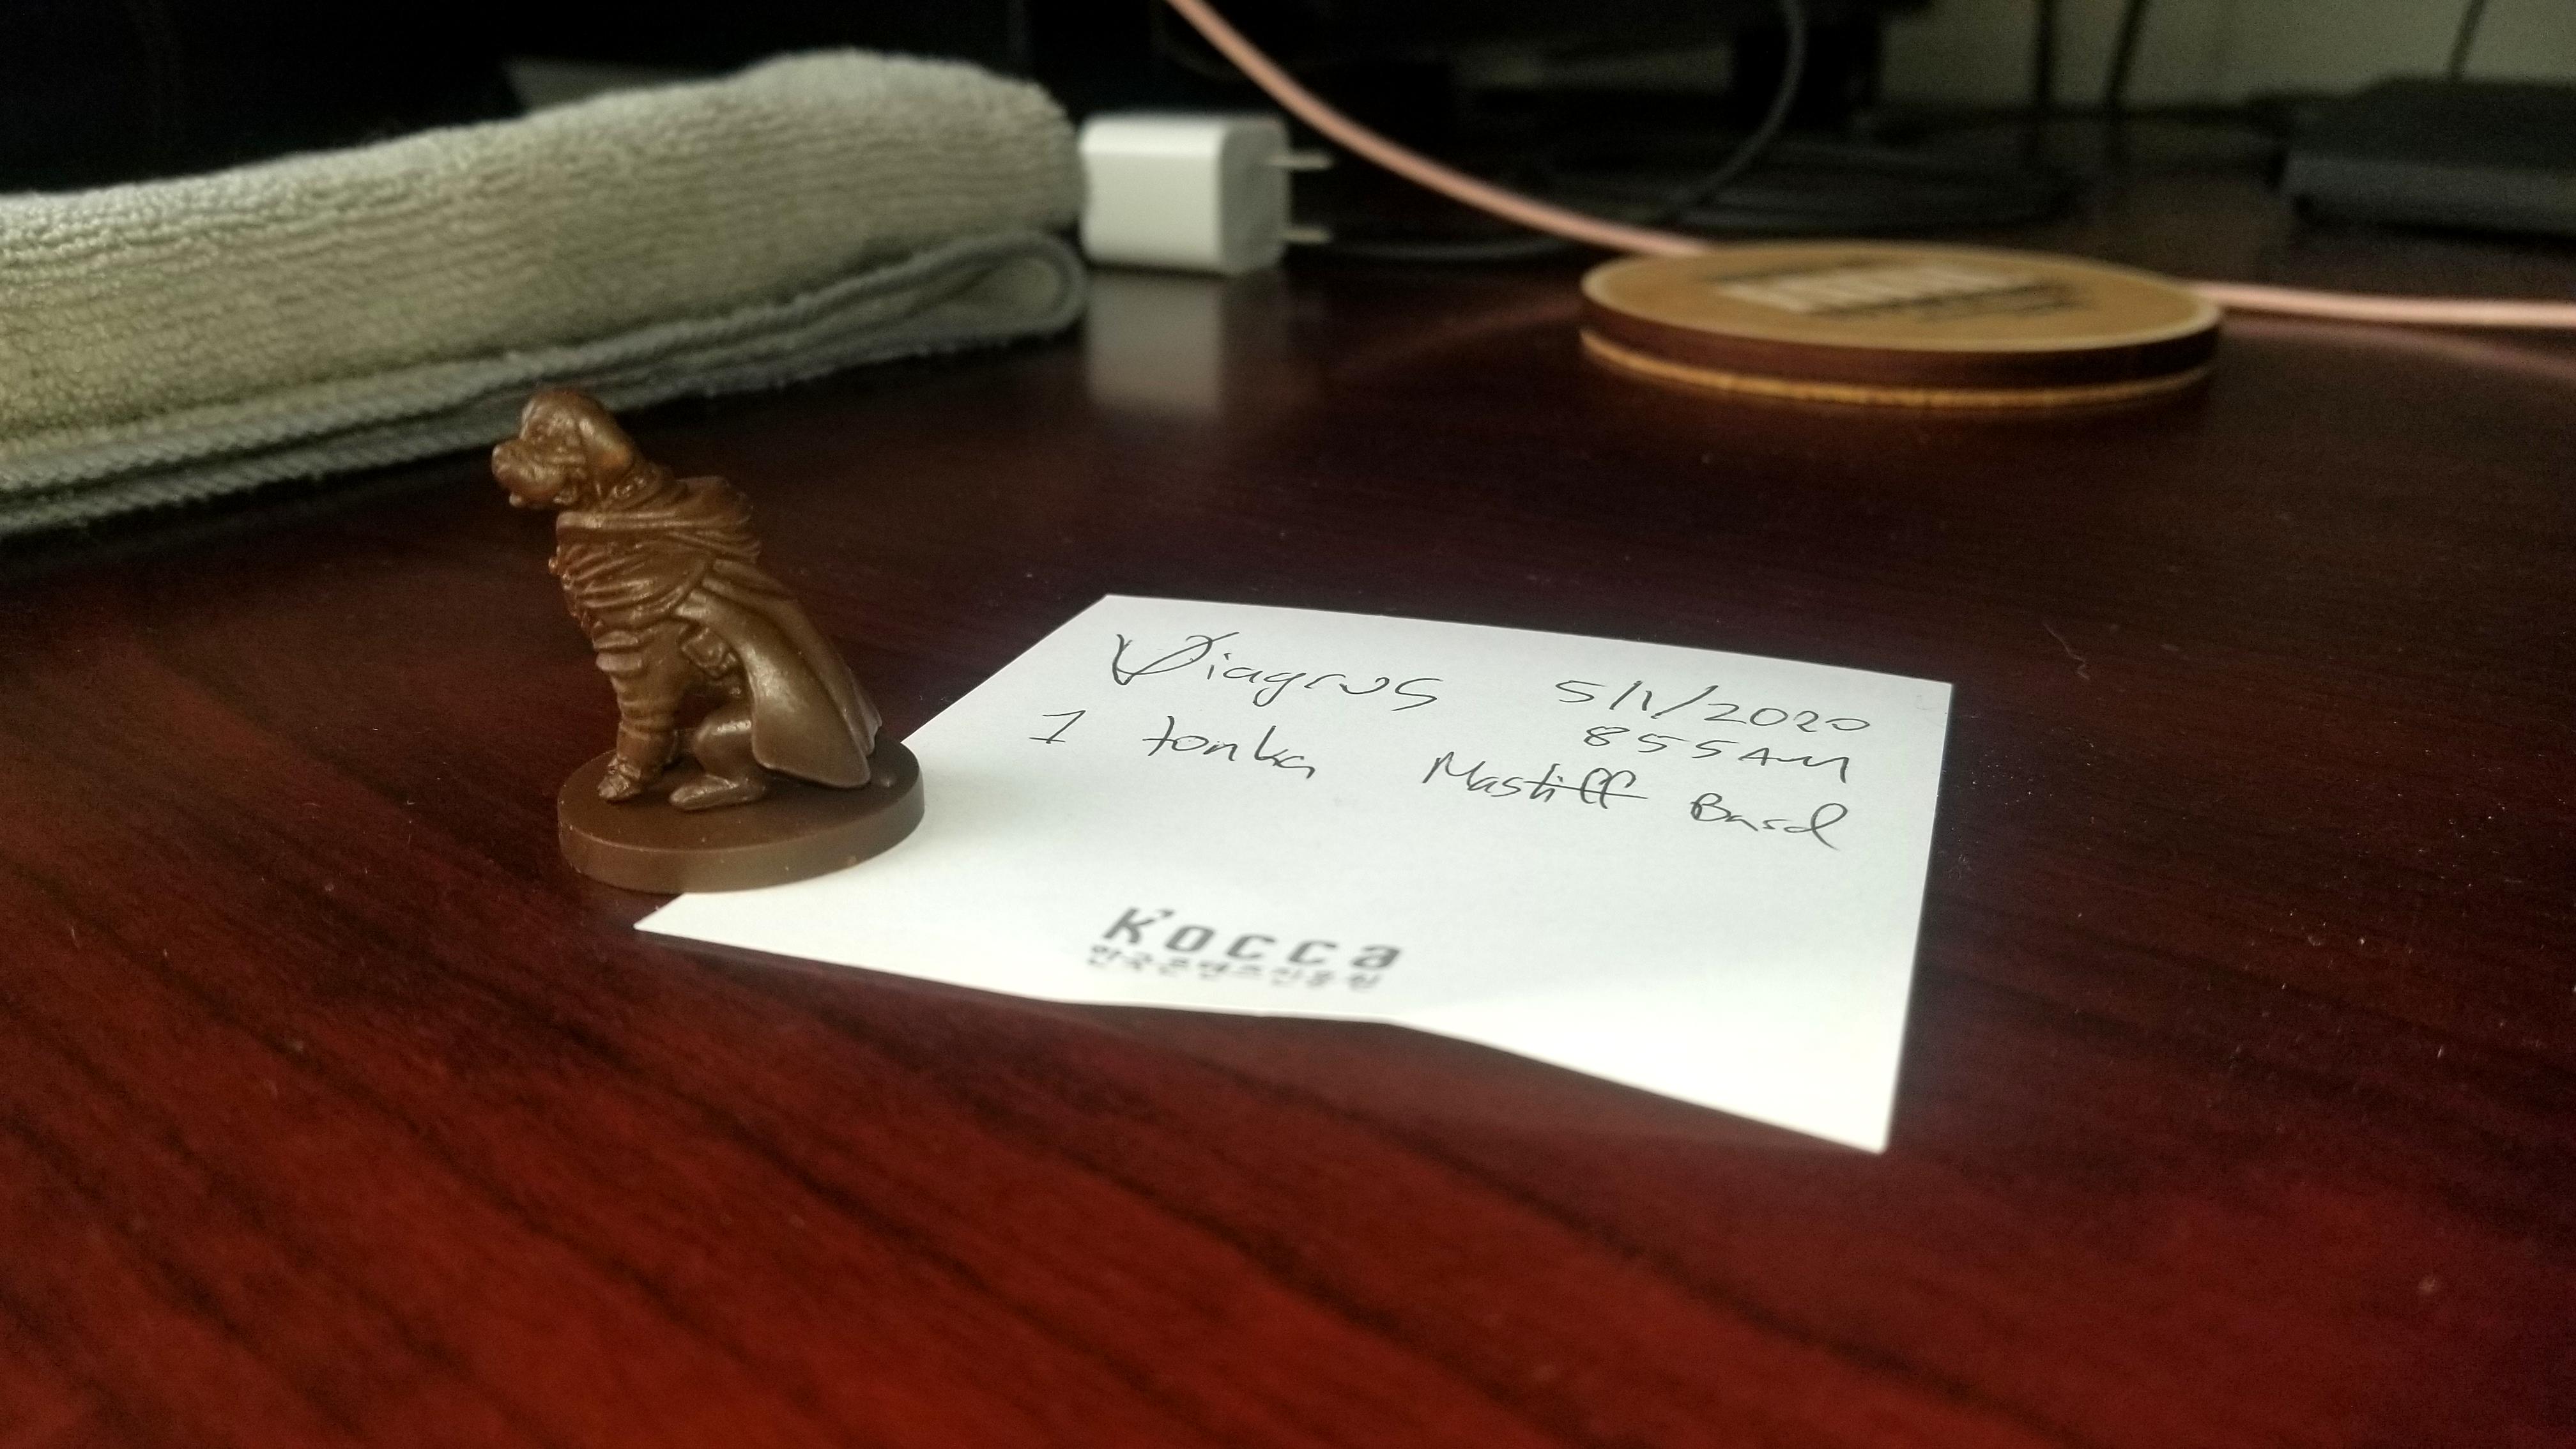 Viagrus 5/1/2020
855 AM
1 tonka Mastiff Bard
Kocca
한국콘텐츠진흥원